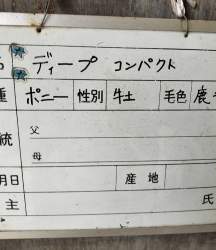 ディープ コンパクト
種 ポニー 性別 牡 毛色 鹿
統 父
母
月日 産地
主 氏